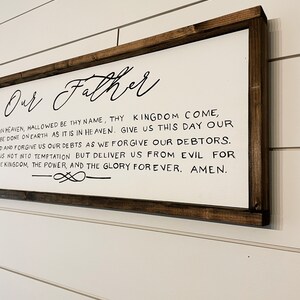 Our Father
IN HEAVEN, HALLOWED BE THY NAME, THY KINGDOM COME,
BE DONE ON EARTH AS IT IS IN HEAVEN. GIVE US THIS DAY OUR
AND FORGIVE US OUR DEBTS AS WE FORGIVE OUR DEBTORS.
US NOT INTO TEMPTATION BUT DELIVER US FROM EVIL FOR
KINGDOM, THE POWER, AND THE GLORY FOREVER. AMEN.